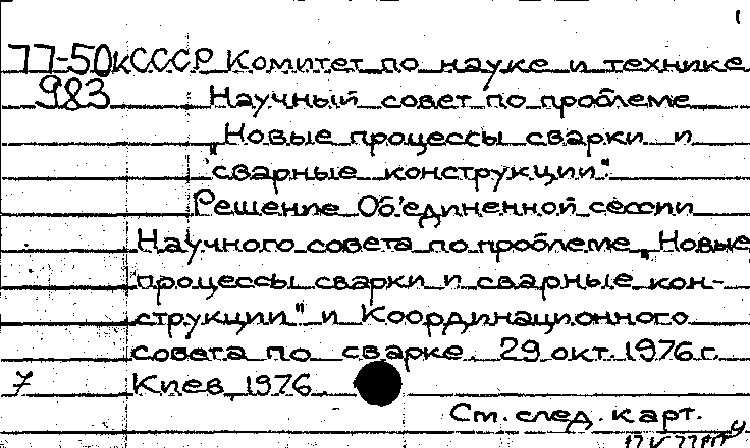 1
77-50к СССР Комитет по науке и технике
983 Научный совет по проблеме
„Новые процессы сварки и
сварные конструкции"
Решение Об'единенной сессии
Научного совета по проблеме „Новые
процессы сварки и сварные кон-
струкции" и Координационного
совета по сварке. 29 окт. 1976 г.
7 Киев, 1976
См. след. карт.